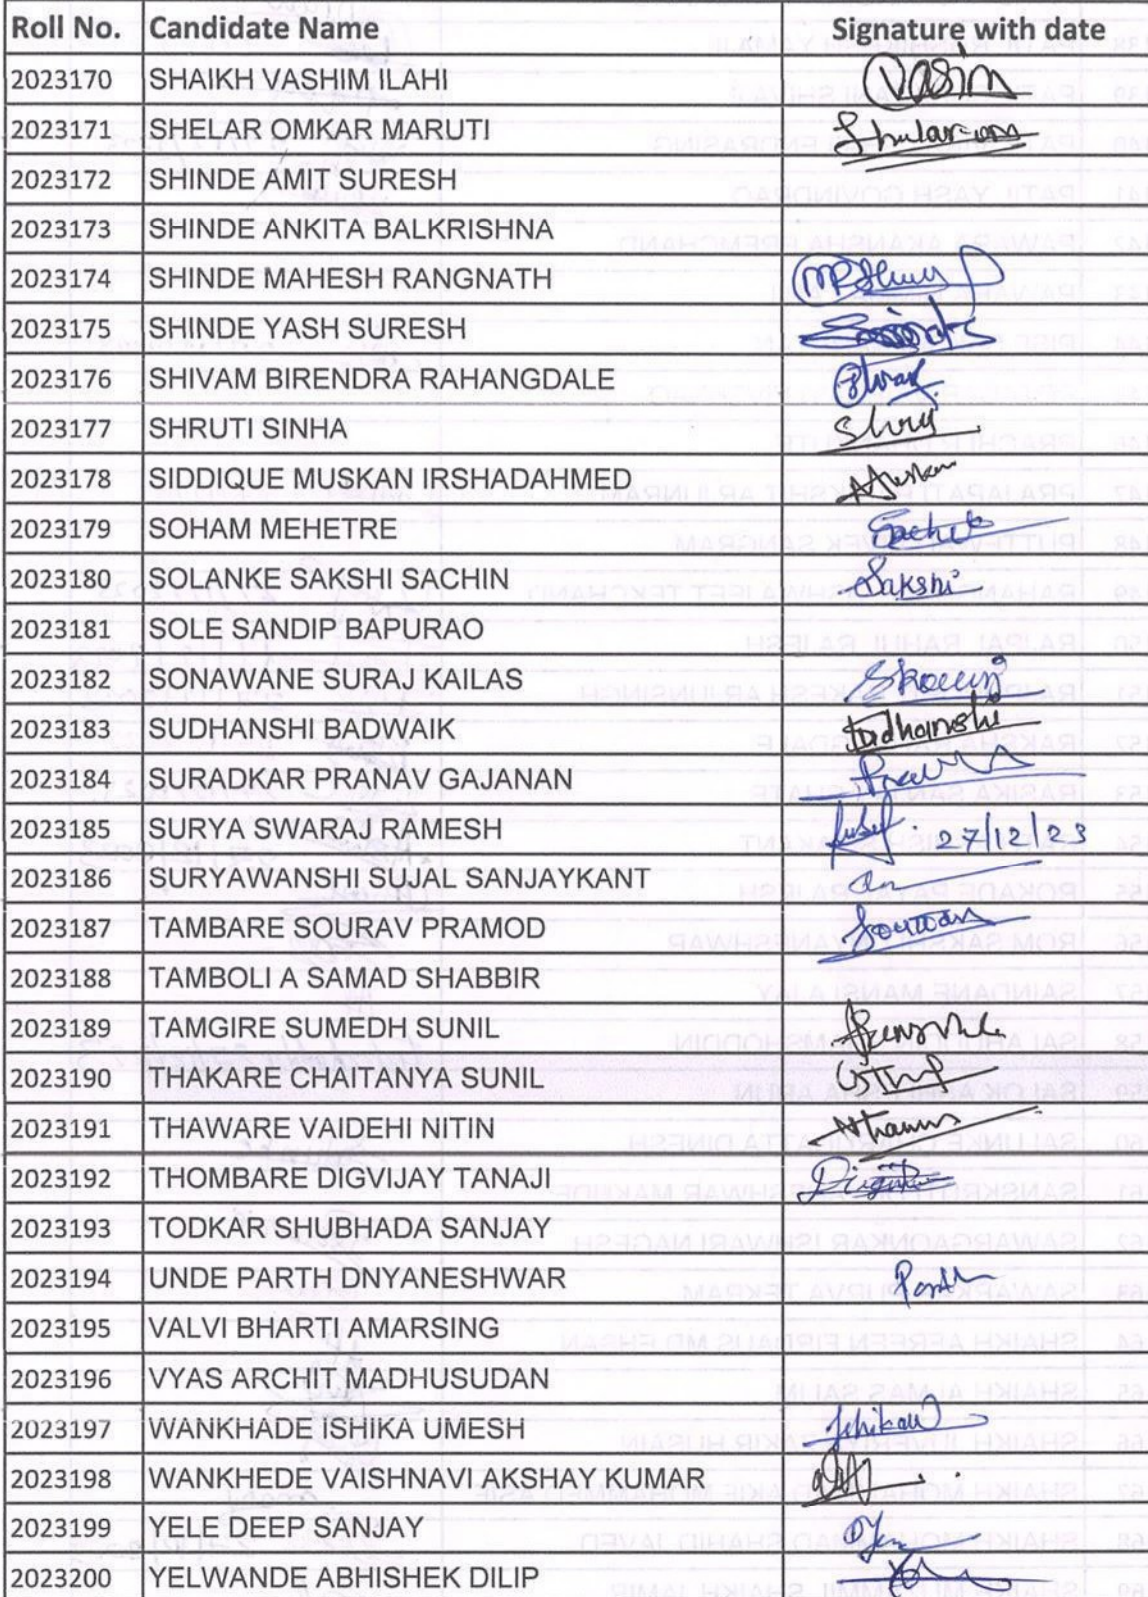 Roll No. Candidate Name Signature with date
2023170 SHAIKH VASHIM ILAHI Vasim
2023171 SHELAR OMKAR MARUTI
2023172 SHINDE AMIT SURESH
2023173 SHINDE ANKITA BALKRISHNA
2023174 SHINDE MAHESH RANGNATH
2023175 SHINDE YASH SURESH
2023176 SHIVAM BIRENDRA RAHANGDALE
2023177 SHRUTI SINHA
2023178 SIDDIQUE MUSKAN IRSHADAHMED
2023179 SOHAM MEHETRE
2023180 SOLANKE SAKSHI SACHIN Sakshi
2023181 SOLE SANDIP BAPURAO
2023182 SONAWANE SURAJ KAILAS
2023183 SUDHANSHI BADWAIK Sudhanshi
2023184 SURADKAR PRANAV GAJANAN
2023185 SURYA SWARAJ RAMESH 27/12/23
2023186 SURYAWANSHI SUJAL SANJAYKANT
2023187 TAMBARE SOURAV PRAMOD
2023188 TAMBOLI A SAMAD SHABBIR
2023189 TAMGIRE SUMEDH SUNIL
2023190 THAKARE CHAITANYA SUNIL
2023191 THAWARE VAIDEHI NITIN
2023192 THOMBARE DIGVIJAY TANAJI
2023193 TODKAR SHUBHADA SANJAY
2023194 UNDE PARTH DNYANESHWAR Parth
2023195 VALVI BHARTI AMARSING
2023196 VYAS ARCHIT MADHUSUDAN
2023197 WANKHADE ISHIKA UMESH
2023198 WANKHEDE VAISHNAVI AKSHAY KUMAR
2023199 YELE DEEP SANJAY
2023200 YELWANDE ABHISHEK DILIP